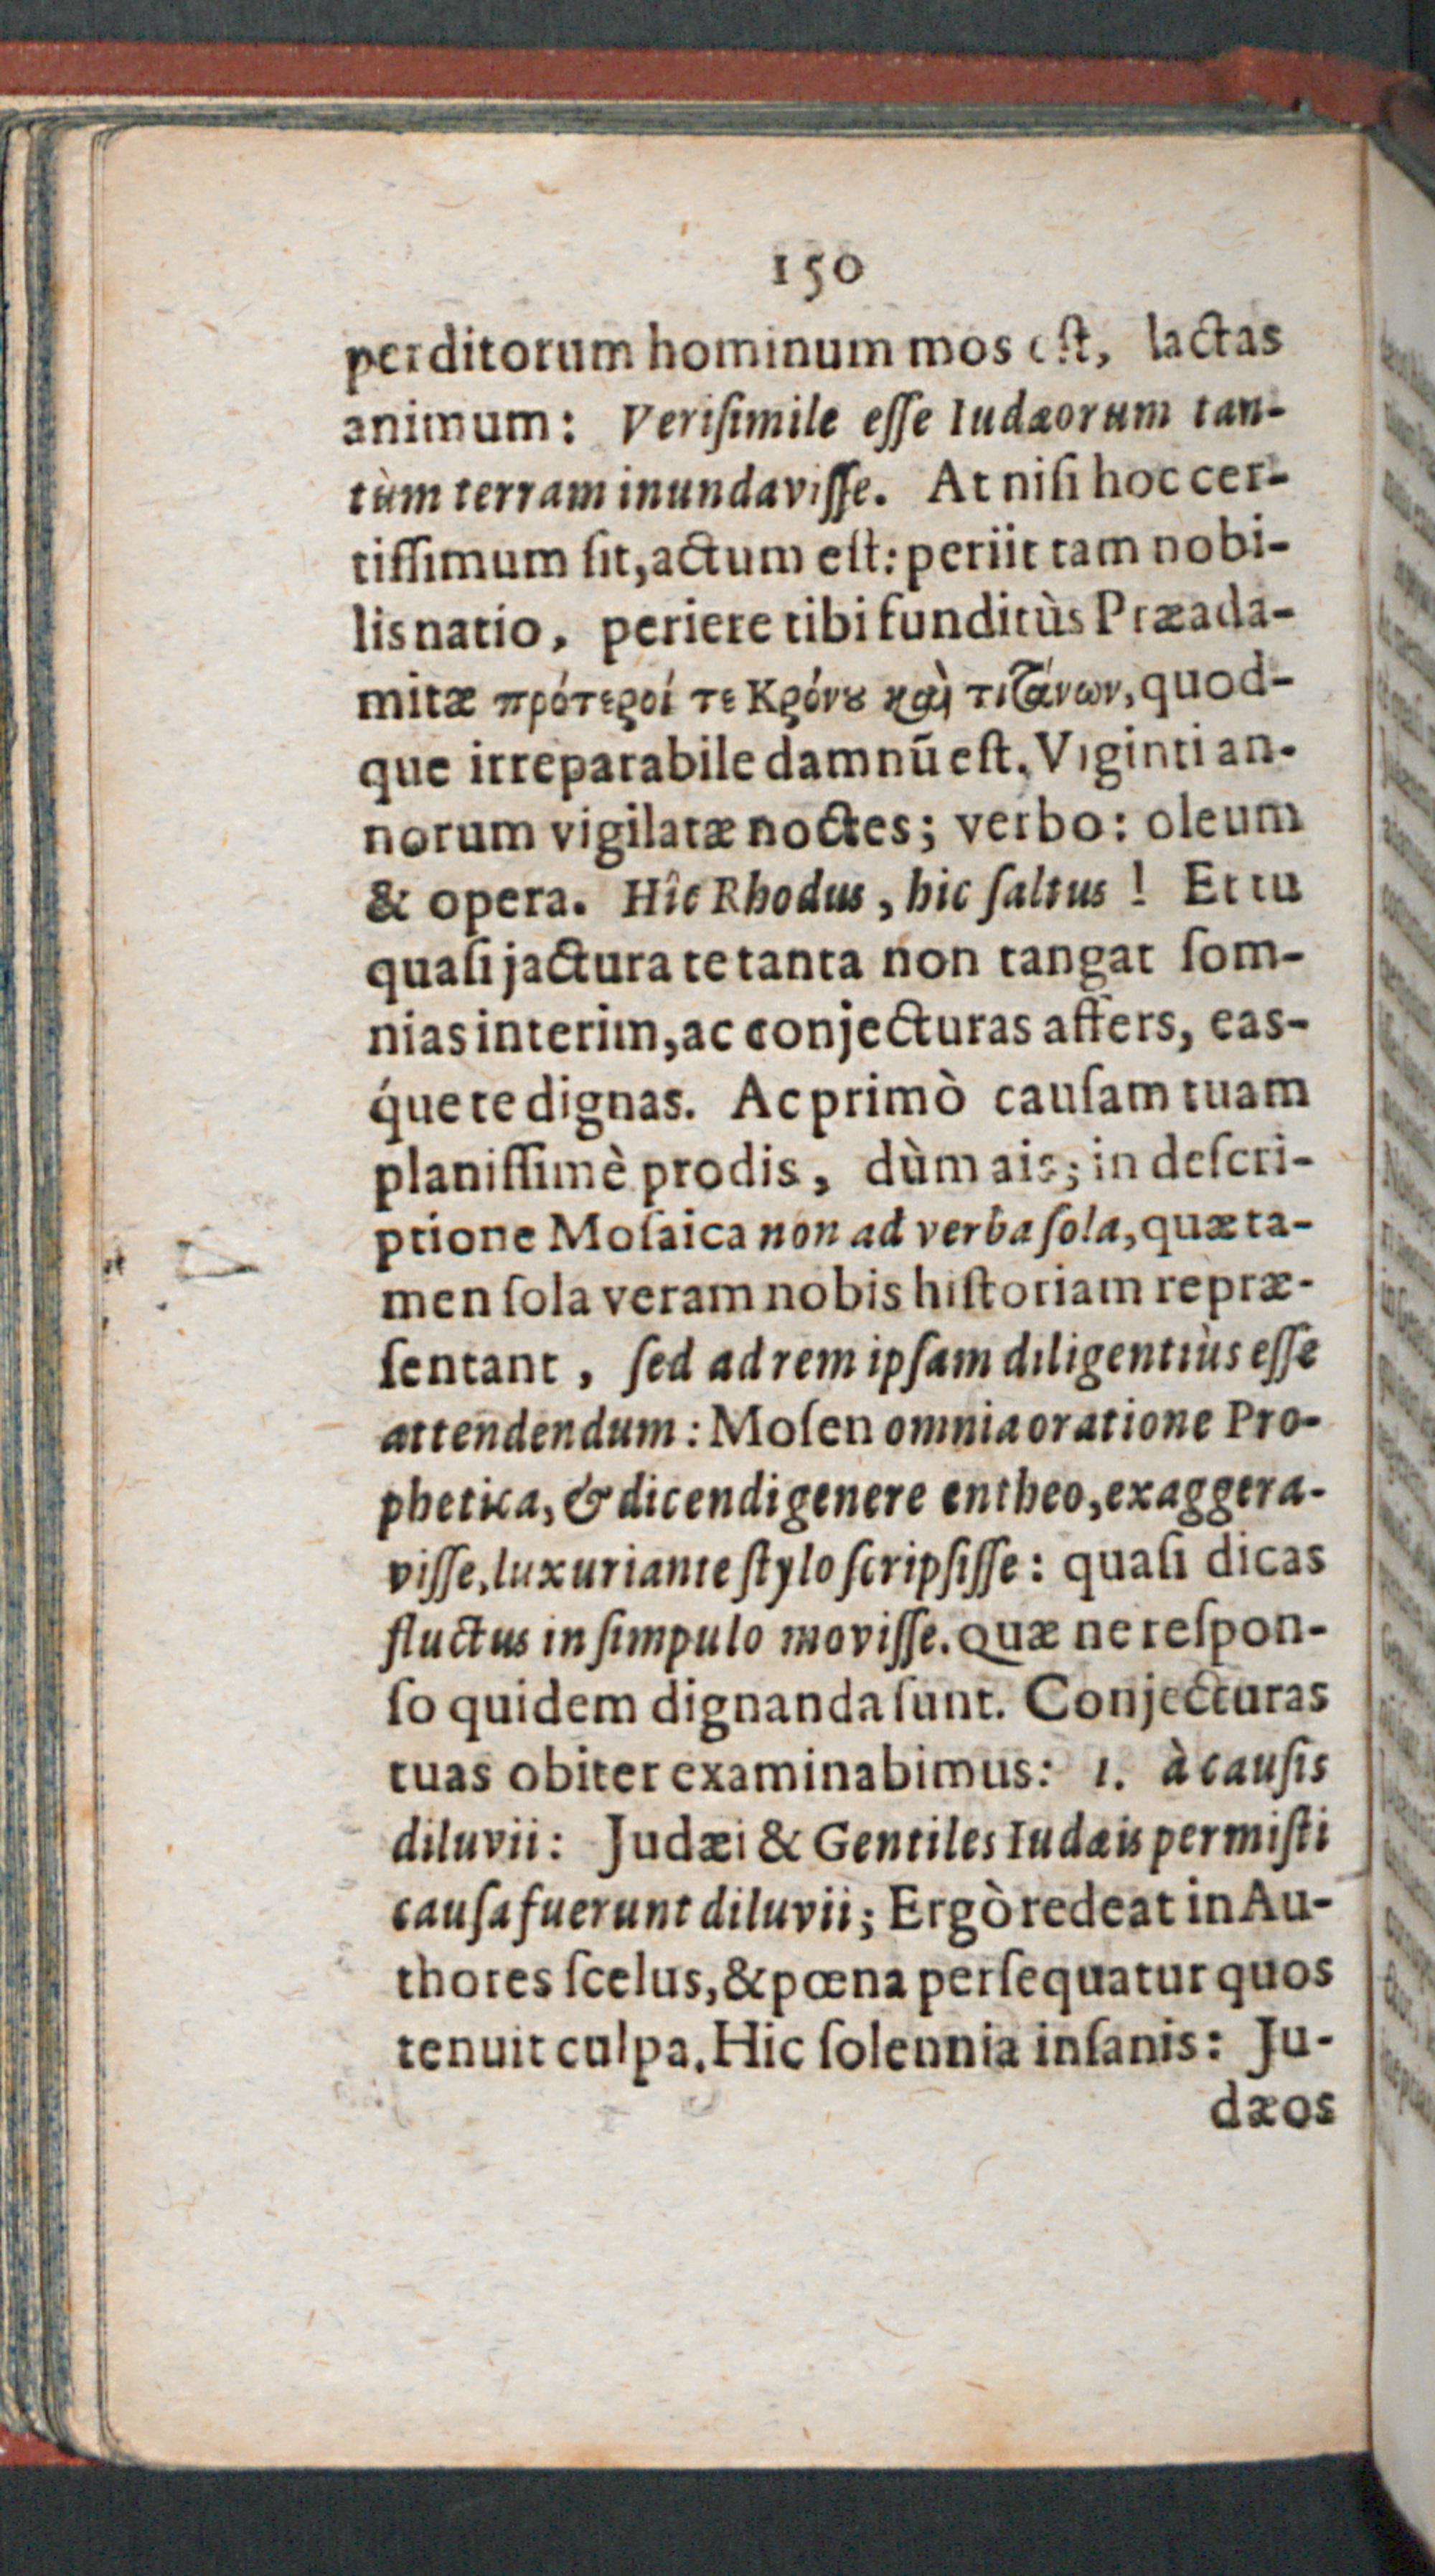 150
perditorum hominum mos eſt, lactas
animum: Veriſimile eſſe Iudæorum tan-
tùm terram inundaviſſe. At niſi hoc cer-
tiſſimum ſit, actum eſt: periit tam nobi-
lis natio, periere tibi funditùs Præada-
mitæ πρότεροί τε Κρόνȣ καὶ τιτάνων, quod-
que irreparabile damnũ eſt. Viginti an-
norum vigilatæ noctes; verbo: oleum
& opera. Hîc Rhodus, hic ſaltus! Et tu
quaſi jactura te tanta non tangat ſom-
nias interim, ac conjecturas affers, eas-
q́ue te dignas. Ac primò cauſam tuam
planiſſimè prodis, dùm ais; in deſcri-
ptione Moſaica non ad verba ſola, quæ ta-
men ſola veram nobis hiſtoriam repræ-
ſentant, ſed ad rem ipſam diligentiùs eſſe
attendendum: Moſen omnia oratione Pro-
phetica, & dicendi genere entheo, exaggera-
viſſe, luxuriante ſtylo ſcripſiſſe: quaſi dicas
fluctus in ſimpulo moviſſe. Quæ ne reſpon-
ſo quidem dignanda ſunt. Conjecturas
tuas obiter examinabimus: 1. à cauſis
diluvii: Judæi & Gentiles Iudæis permiſti
cauſa fuerunt diluvii; Ergò redeat in Au-
thores ſcelus, & pœna perſequatur quos
tenuit culpa. Hic ſolennia inſanis: Ju-
dæos